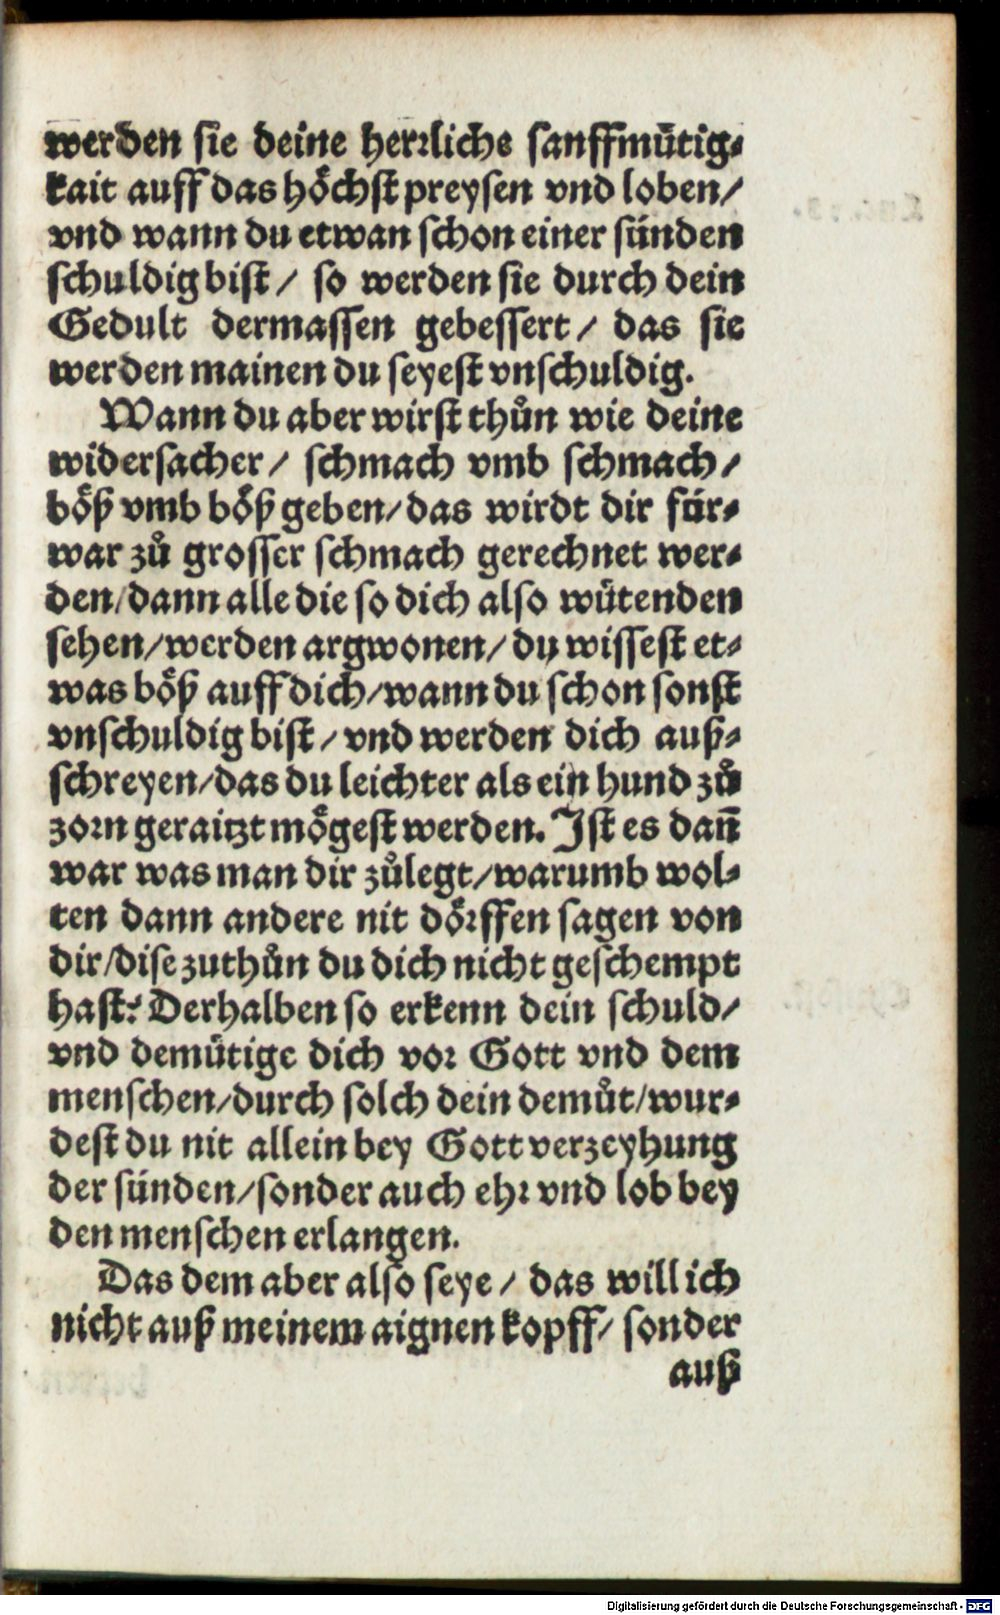 werden sie deine herrliche sanffmütig⸗
kait auff das höchst preysen vnd loben/
vnd wann du etwan schon einer sünden
schuldig bist/ so werden sie durch dein
Gedult dermassen gebessert/ das sie
werden mainen du seyest vnschuldig.
Wann du aber wirst thůn wie deine
widersacher/ schmach vmb schmach/
böß vmb böß geben/das wirdt dir für⸗
war zů grosser schmach gerechnet wer⸗
den/dann alle die so dich also wütenden
sehen/werden argwonen/du wissest et⸗
was böß auff dich/wann du schon sonst
vnschuldig bist/vnd werden dich auß⸗
schreyen/das du leichter als ein hund zů
zorn geraitzt mögest werden. Ist es dañ
war was man dir zůlegt/warumb wol⸗
ten dann andere nit dörffen sagen von
dir/dise zuthůn du dich nicht geschempt
hast? Derhalben so erkenn dein schuld/
vnd demütige dich vor Gott vnd dem
menschen/durch solch dein demůt/wur⸗
dest du nit allein bey Gott verzeyhung
der sünden/sonder auch ehr vnd lob bey
den menschen erlangen.
Das dem aber also seye/ das will ich
nicht auß meinem aignen kopff/ sonder
auß
Digitalisierung gefördert durch die Deutsche Forschungsgemeinschaft - DFG